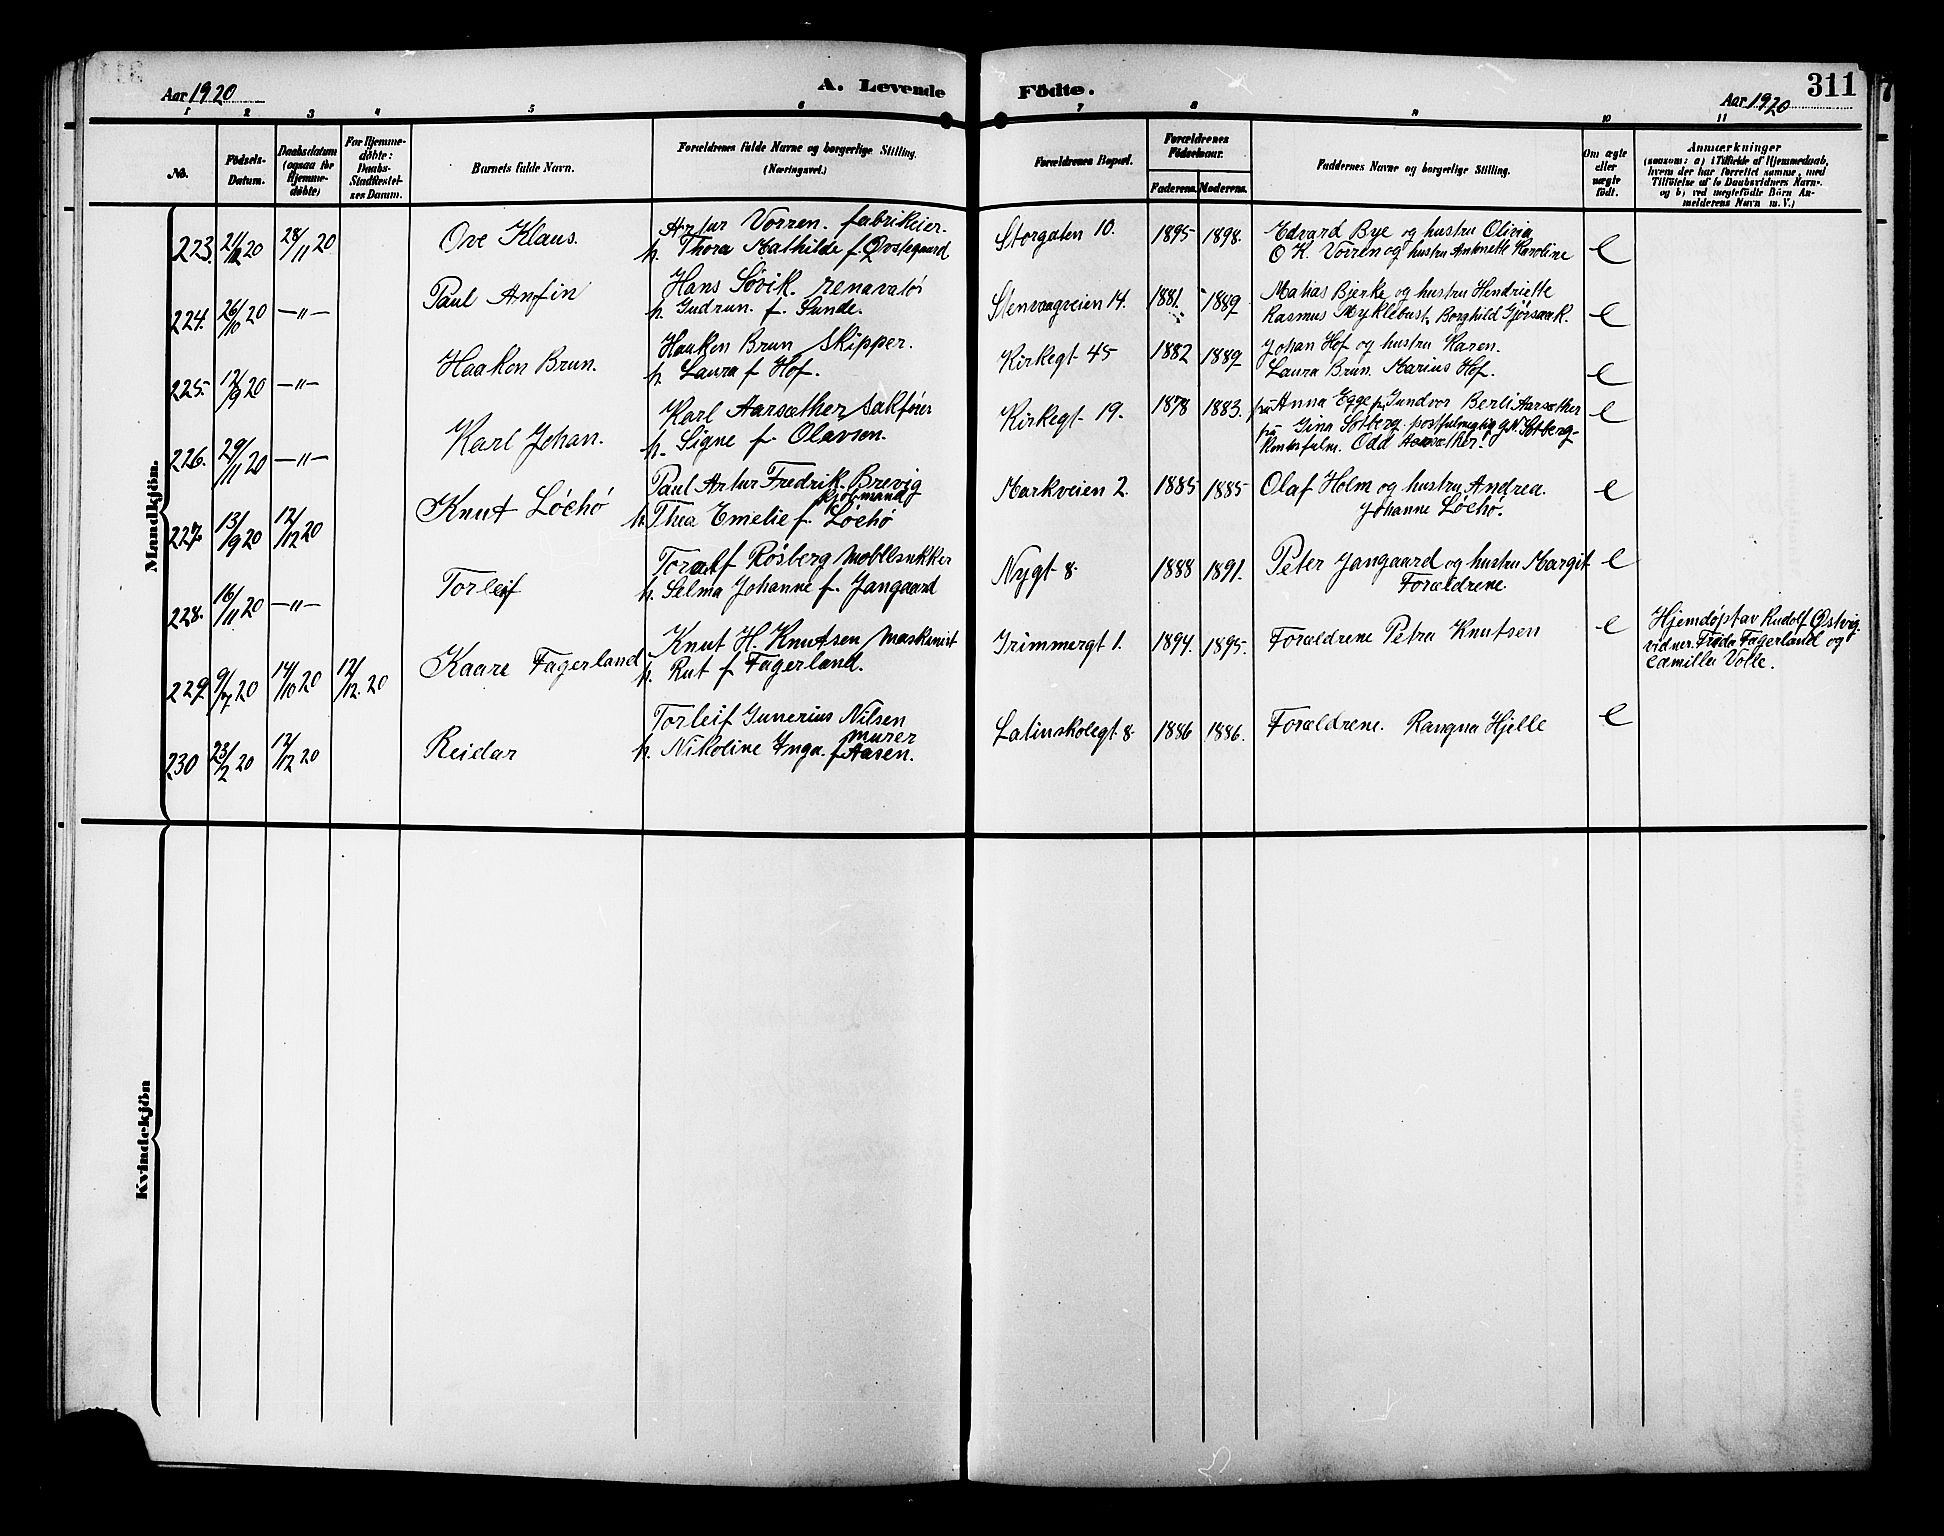 Aar 1920
A. Levende Födte.
311
Aar 1920
1 2 3 4 5 6 7 8 9 10 11
No.
Födsels-
Datum.
Daabsdatum
(ogsaa for
Hjemme-
döbte)
For Hjemme-
döbte:
Daabs-
Stadfæstel-
ses Datum.
Barnets fulde Navn.
Forældrenes fulde Navne og borgerlige Stilling.
(Næringsvei.)
Forældrenes Bopæl.
Forældrenes
Födselsaar.
Faderens. Moderens.
Faddernes Navne og borgerlige Stilling.
Om ægte
eller
uægte
födt.
Anmærkninger
(saasom: a) i Tilfælde af Hjemmedaab,
hvem der har forrettet samme, med
Tilföielse af to Daabsvidners Navn-
og b) ved uegtefödte Börn An-
melderens Navn m. V.)
Mandkjön.
223. 28/11 20 Ove Klaus. Artur Vorren. fabrikeier.
h. Thora Mathilde f. Østegaard
Storgaten 10. 1895 1898. Edvard Bye og hustru Olivia
O K. Vorren og hustru Antonette Karoline e
224. 26/10 20 —"— Paul Anfin Hans Søvik. renovatør
h. Gudrun. f. Sunde.
Stenvaagveien 14. 1881. 1889 Matias Bjerke og hustru Hendriette
Rasmus Myklebust. Borghild e
225. 12/9 20 —"— Haakon Brun. Haakon Brun Skipper.
h. Laura f Hof.
Kirkegt 45 1882 1889 Johan Hof og hustru Karen.
Laura Brun. Marius Hof. e
226. 29/11 20 —"— Karl Johan. Karl Aarsæther sakfører
h. Signe f. Olavsen.
Kirkegt 19. 1878 1883. fru Anna Egge fr. Gundvor Berli Aarsæther e
fru Gina Sotberg. postfulmegtig G. N. Sotberg-
Kontorfulm. Odd Aarsæther.
227. 13/9 20 12/12 20 Knut Løchø Paul Artur Fredrik Brevig
kjøbmand
h. Thea Emelie f. Løchø
Markveien 2. 1885 1885 Olaf Holm og hustru Andrea.
Johanne Løchø. e
228. 16/11 20 —"— Torleif Toralf Røsberg Møbelsnekker
h. Selma Johanne f. Jangaard
Nygt 8. 1888 1891. Peter Jangaard og hustru Margit
Forældrene. e
229 9/7 20 14/10 20 12/12. 20 Kaare Fagerland Knut H. Knutsen Maskinist
h. Rut f Fagerland.
Grimmergt 1. 1894. 1895. Forældrene Petra Knutsen e
Hjemdøpt av Rudolf Østvig
vidner. Frøde Fagerland og
Camilla Volle.
230 23/2 20 12/12 20 Reidar Torleif Gunerius Nilsen
murer
h. Nikoline Inga. f Aasen.
Latinskolegt 8. 1886 1886. Forældrene. Rangna Hjelle e
Kvindekjön